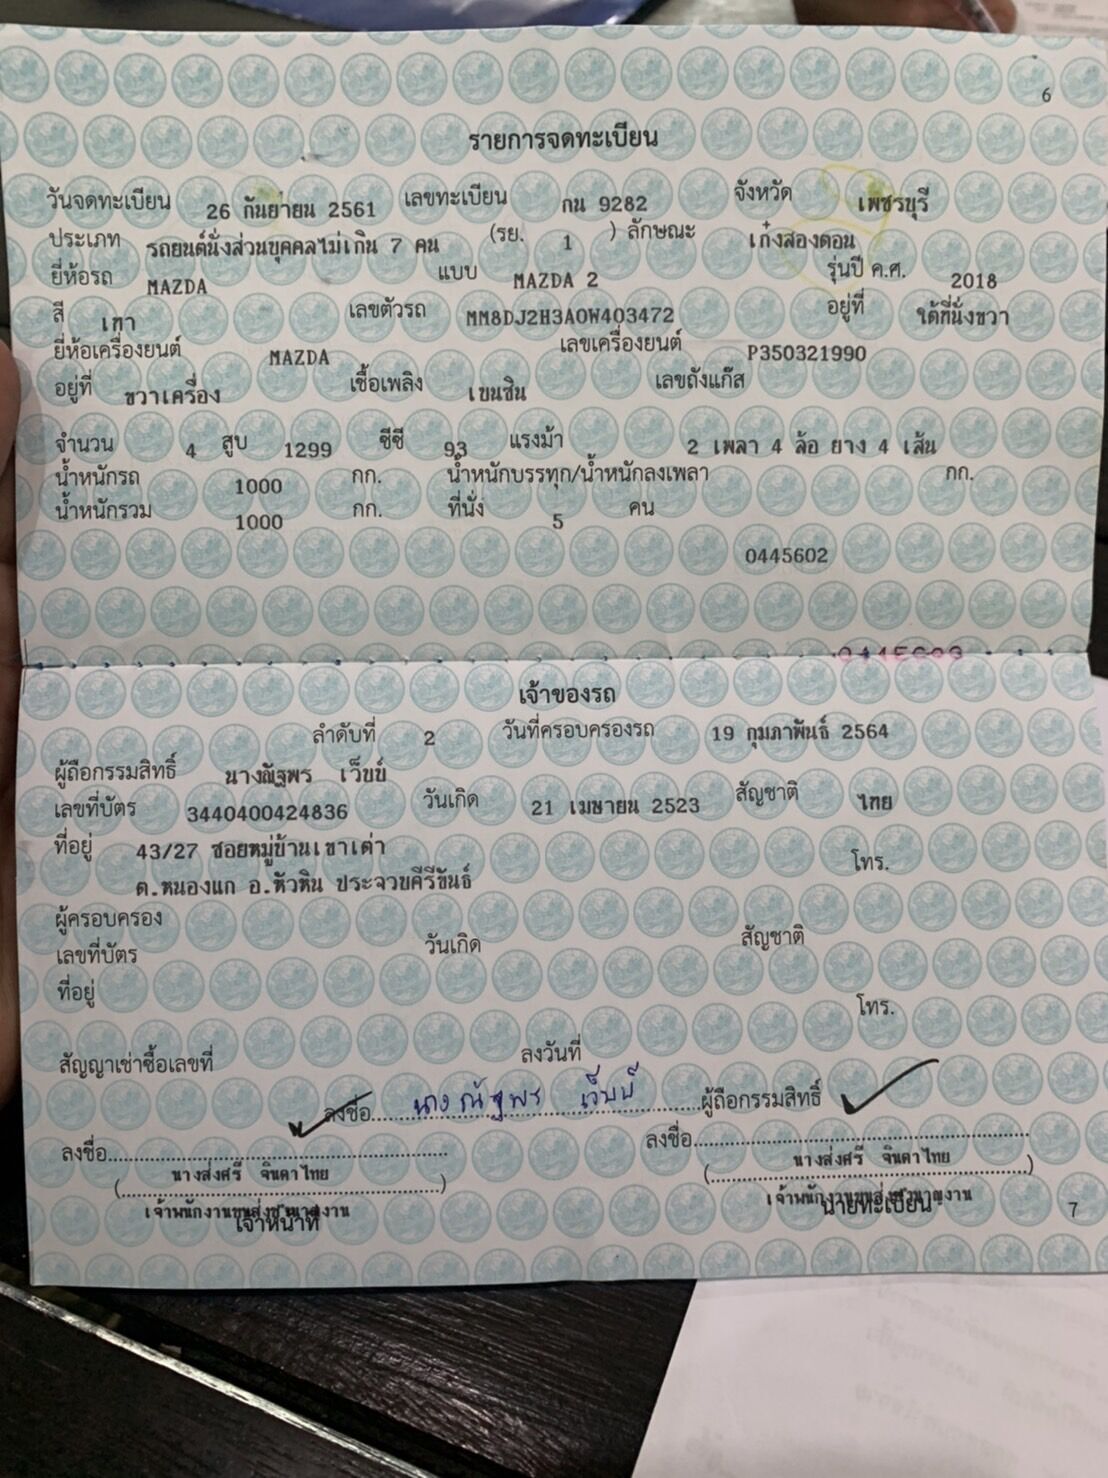 6
รายการจดทะเบียน
วันจดทะเบียน 26 กันยายน 2561 เลขทะเบียน กน 9282 จังหวัด เพชรบุรี
ประเภท รถยนต์นั่งส่วนบุคคลไม่เกิน 7 คน (รย. 1 ) ลักษณะ เก๋งสองตอน
ยี่ห้อรถ MAZDA แบบ MAZDA 2 รุ่นปี ค.ศ. 2018
สี เทา เลขตัวรถ MM8DJ2H3A0W403472 อยู่ที่ ใต้ที่นั่งขวา
ยี่ห้อเครื่องยนต์ MAZDA เลขเครื่องยนต์ P350321990
อยู่ที่ ขวาเครื่อง เชื้อเพลิง เบนซิน เลขถังแก๊ส
จำนวน 4 สูบ 1299 ซีซี 93 แรงม้า 2 เพลา 4 ล้อ ยาง 4 เส้น
น้ำหนักรถ 1000 กก. น้ำหนักบรรทุก/น้ำหนักลงเพลา กก.
น้ำหนักรวม 1000 กก. ที่นั่ง 5 คน
0445602
เจ้าของรถ
ลำดับที่ 2 วันที่ครอบครองรถ 19 กุมภาพันธ์ 2564
ผู้ถือกรรมสิทธิ์ นางณัฐพร เว็บบ์
เลขที่บัตร 3440400424836 วันเกิด 21 เมษายน 2523 สัญชาติ ไทย
ที่อยู่ 43/27 ซอยหมู่บ้านเขาเต่า โทร.
ต.หนองแก อ.หัวหิน ประจวบคีรีขันธ์
ผู้ครอบครอง
เลขที่บัตร วันเกิด สัญชาติ
ที่อยู่ โทร.
สัญญาเช่าซื้อเลขที่ ลงวันที่
ลงชื่อ นาง ณัฐพร เว็บบ์ ผู้ถือกรรมสิทธิ์
ลงชื่อ ลงชื่อ
(นางส่งศรี จินดาไทย) (นางส่งศรี จินดาไทย)
เจ้าพนักงานขนส่งชำนาญงาน เจ้าพนักงานขนส่งชำนาญงาน
เจ้าหน้าที่ นายทะเบียน
7